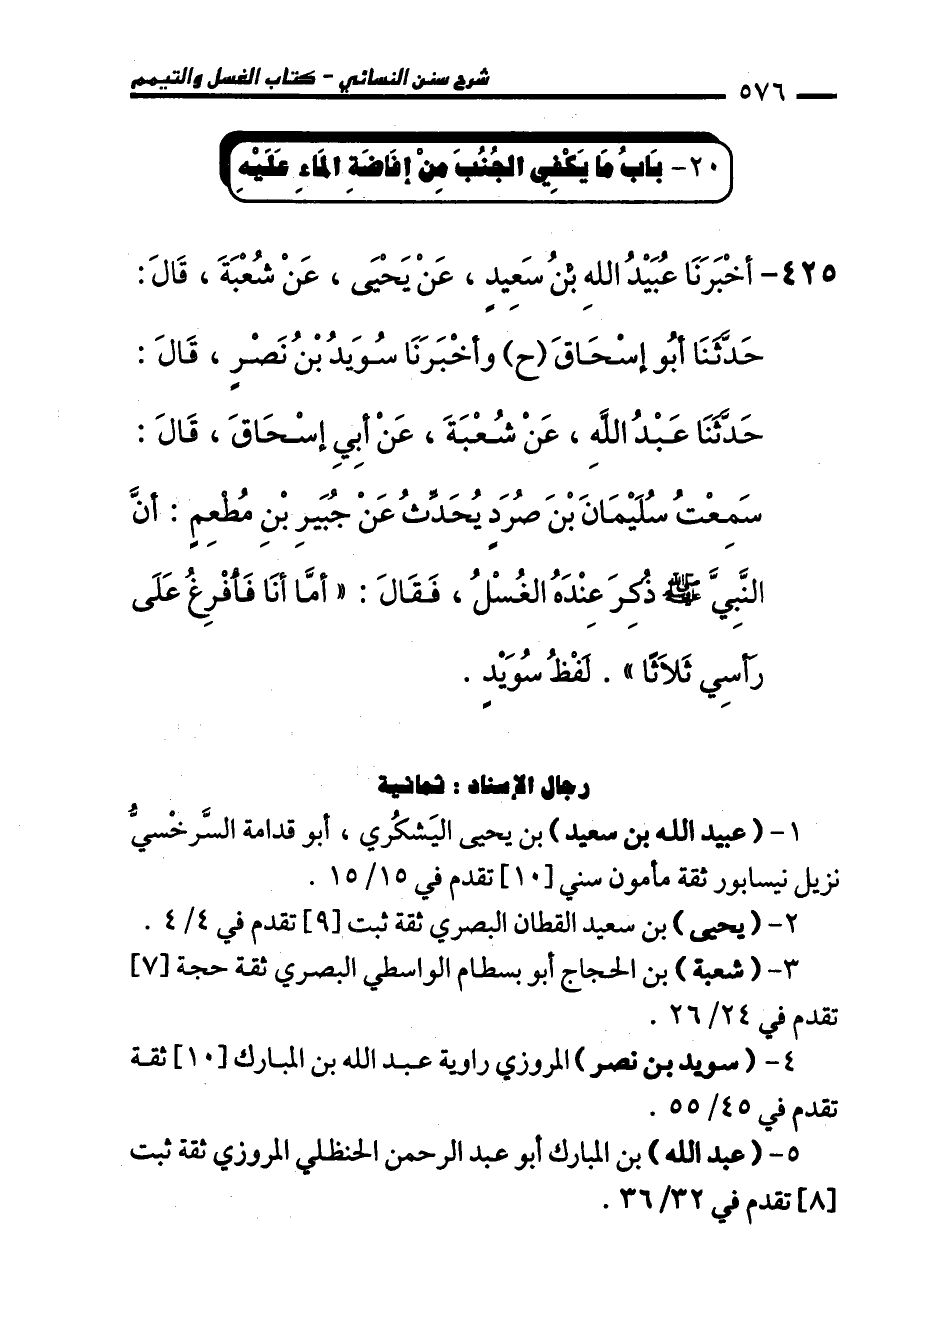 شرح سنن النسائي - كتاب الغسل والتيمم
٥٧٦
٢٠- بَابُ مَا يَكْفِي الجُنُبَ مِنْ إفَاضَةِ المَاءِ عَلَيْهِ
٤٢٥- أخْبَرَنَا عُبَيْدُ اللهِ بْنُ سَعِيدٍ ، عَنْ يَحْيَى ، عَنْ شُعْبَةَ ، قَالَ :
حَدَّثَنَا أبُو إسْحَاقَ (ح) وأخْبَرَنَا سُوَيدُ بْنُ نَصْرٍ ، قَالَ :
حَدَّثَنَا عَبْدُ اللَّهِ ، عَنْ شُعْبَةَ ، عَنْ أبِي إسْحَاقَ ، قَالَ :
سَمِعْتُ سُلَيْمَانَ بْنَ صُرَدٍ يُحَدِّثُ عَنْ جُبَيرِ بْنِ مُطْعِمٍ : أنَّ
النَّبِيَّ ﷺ ذُكِرَ عِنْدَهُ الغُسْلُ ، فَقَالَ : « أمَّا أنَا فَأُفْرِغُ عَلَى
رَأسِي ثَلاَثًا » . لَفْظُ سُوَيْدٍ .
رجال الإسناد : ثمانية
١- (عبيد الله بن سعيد) بن يحيى اليَشكُري ، أبو قدامة السَّرخْسيُّ
نزيل نيسابور ثقة مأمون سني [١٠] تقدم في ١٥/ ١٥ .
٢- (يحيى) بن سعيد القطان البصري ثقة ثبت [٩] تقدم في ٤/ ٤ .
٣- (شعبة) بن الحجاج أبو بسطام الواسطي البصري ثقة حجة [٧]
تقدم في ٢٤/ ٢٦ .
٤- (سويد بن نصر) المروزي راوية عبد الله بن المبارك [١٠] ثقة
تقدم في ٤٥/ ٥٥ .
٥- (عبد الله) بن المبارك أبو عبد الرحمن الحنظلي المروزي ثقة ثبت
[٨] تقدم في ٣٢/ ٣٦ .